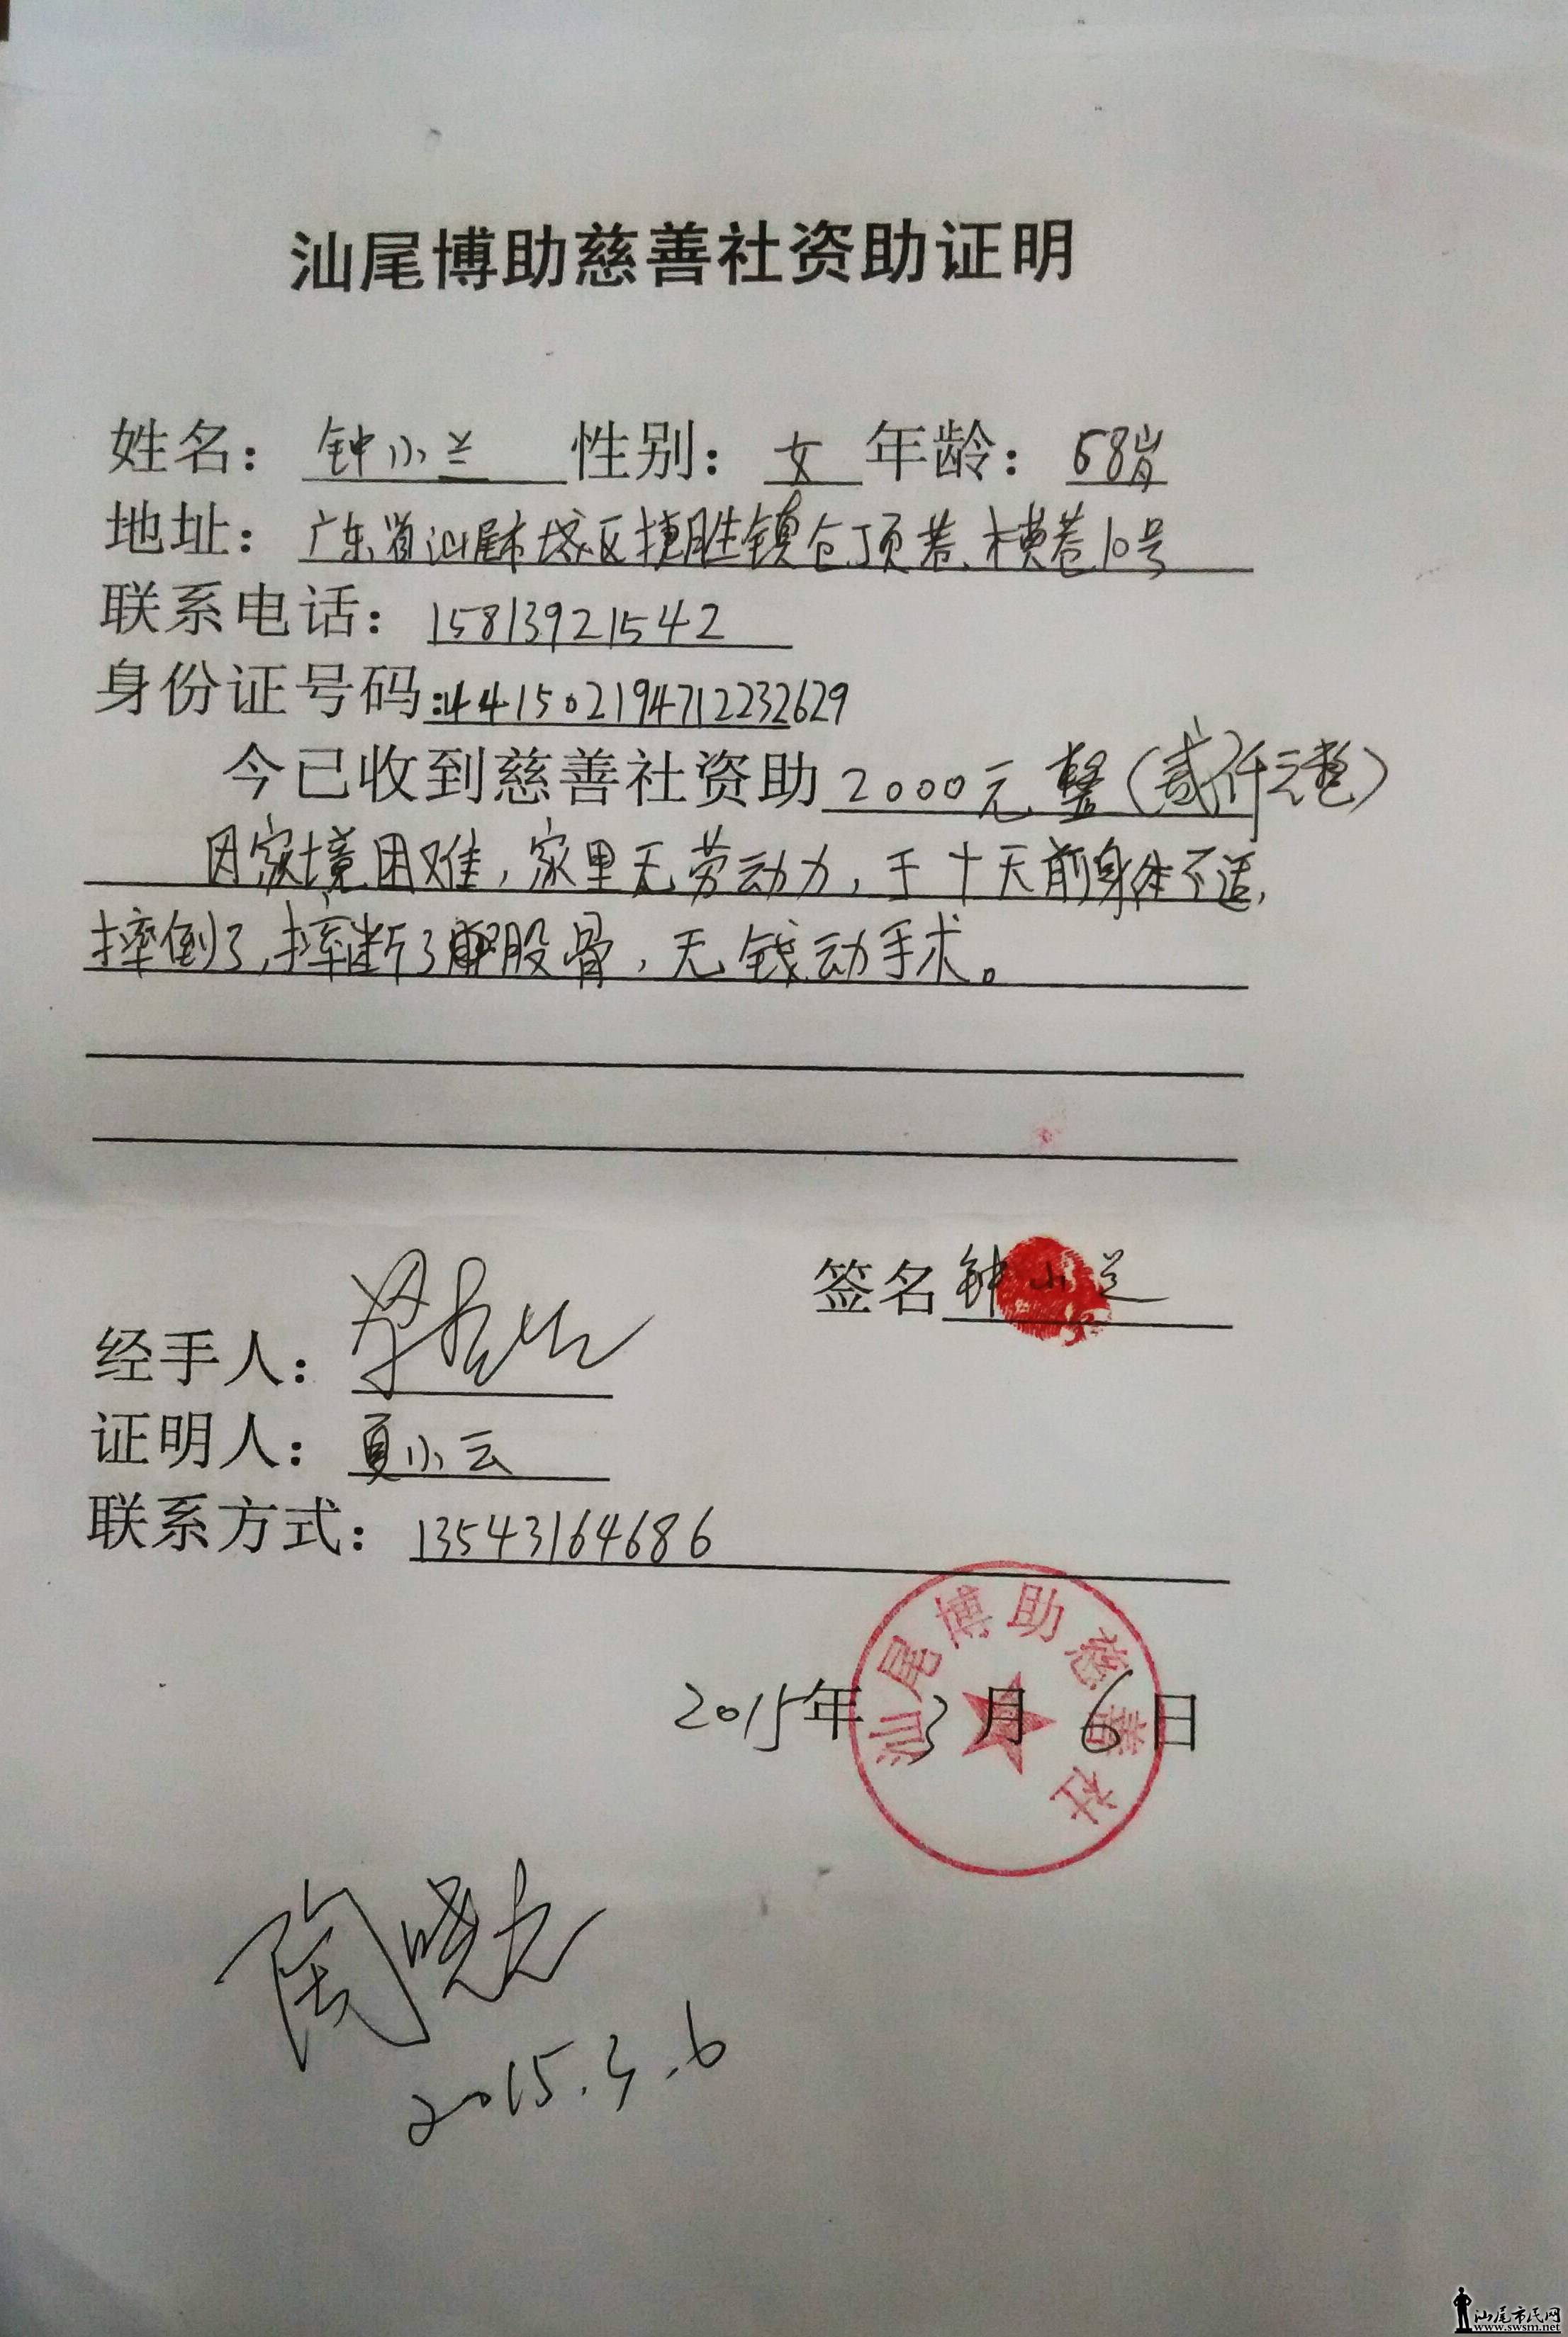 汕尾博助慈善社资助证明
姓名：钟小兰 性别：女 年龄：68岁
地址：广东省汕尾市城区捷胜镇仓顶巷、横巷10号
联系电话：15813921542
身份证号码：441502194712232629
今已收到慈善社资助2000元整（贰仟元整）
因家境困难，家里无劳动力，于十天前身体不适，
摔倒了，摔断了股骨，无钱动手术。
签名 钟小兰
经手人：
证明人：夏小云
联系方式：13543164686
汕尾博助慈善社
2015年3月6日
陶
2015.3.6
汕尾市民网
www.swsm.net